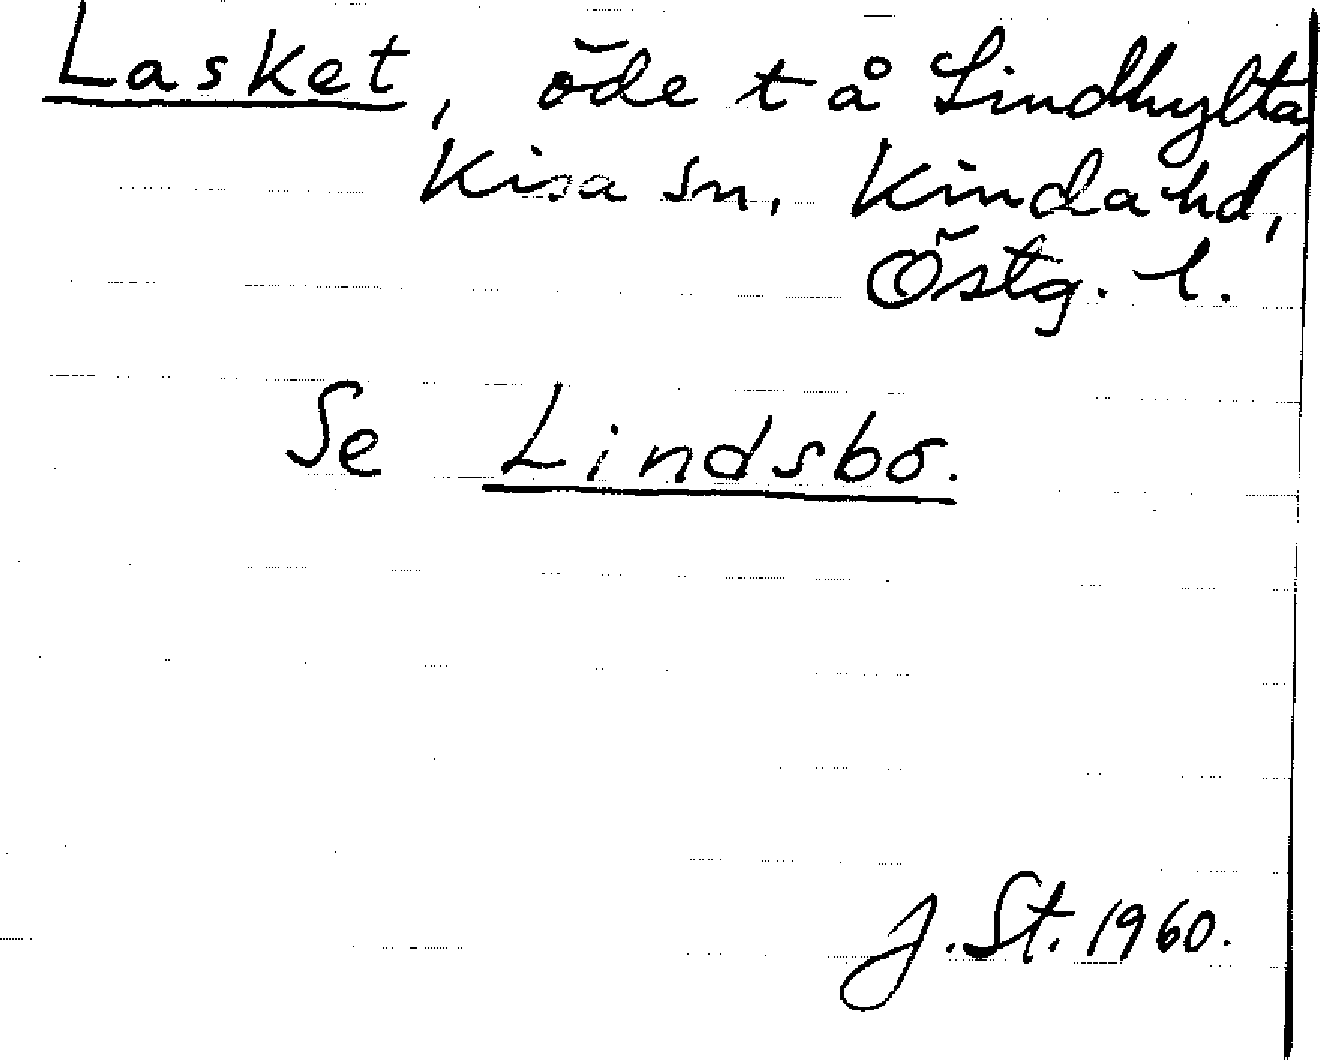 Lasket, öde t å Lindhylta,
Kisa sn, Kinda hd,
Östg. l.
Se Lindsbo.
J. St. 1960.